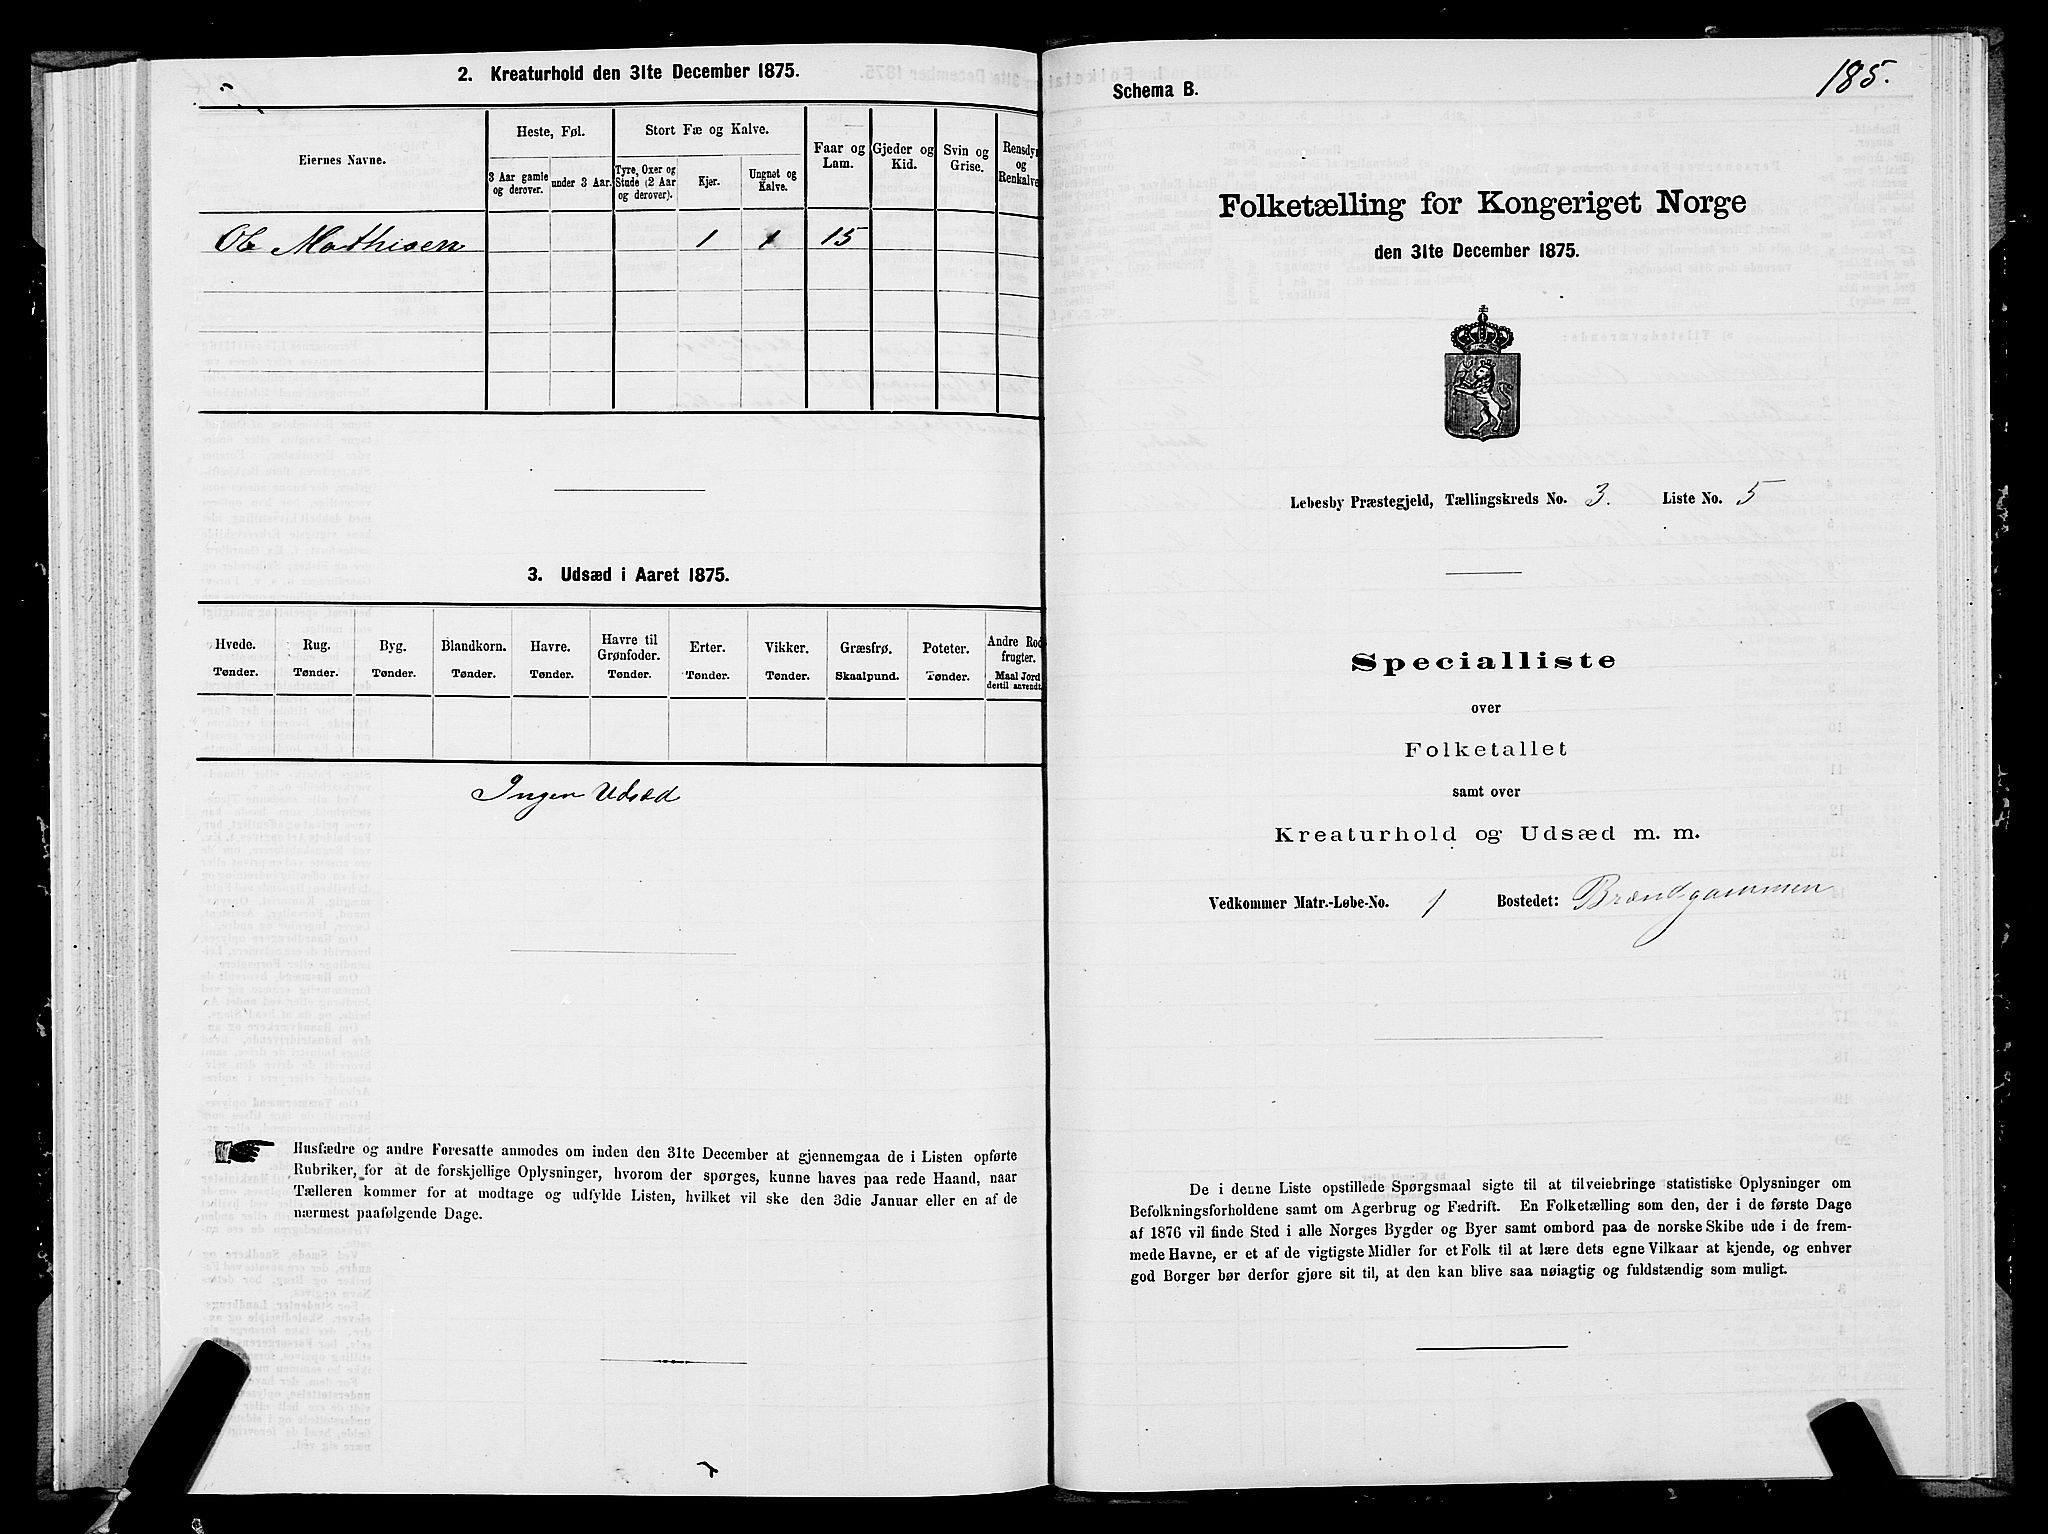 2. Kreaturhold den 31te December 1875.
Eiernes Navne.
Heste, Føl.
Stort Fæ og Kalve.
Faar og Lam.
Gjeder og Kid.
Svin og Grise.
Rensdyr og Renkalve
3 Aar gamle og derover.
under 3 Aar.
Tyre, Oxer og Stude (2 Aar og derover).
Kjør.
Ungnøt og Kalve.
Ole Mathisen 1 1 15
3. Udsæd i Aaret 1875.
Hvede. Rug. Byg. Blandkorn. Havre. Havre til Grønfoder. Erter. Vikker. Græsfrø. Poteter. Andre Rodfrugter.
Tønder. Tønder. Tønder. Tønder. Tønder. Tønder. Tønder. Tønder. Skaalpund. Tønder. Maal Jord dertil anvendt.
Ingen Udsæd
Husfædre og andre Foresatte anmodes om inden den 31te December at gjennemgaa de i Listen opførte
Rubriker, for at de forskjellige Oplysninger, hvorom der spørges, kunne haves paa rede Haand, naar
Tælleren kommer for at modtage og udfylde Listen, hvilket vil ske den 3die Januar eller en af de
nærmest paafølgende Dage.
Schema B.
185.
Folketælling for Kongeriget Norge
den 31te December 1875.
Lebesby Præstegjeld, Tællingskreds No. 3. Liste No. 5
Specialliste
over
Folketallet
samt over
Kreaturhold og Udsæd m. m.
Vedkommer Matr.-Løbe-No. 1 Bostedet: Brændgammen
De i denne Liste opstillede Spørgsmaal sigte til at tilveiebringe statistiske Oplysninger om
Befolkningsforholdene samt om Agerbrug og Fædrift. En Folketælling som den, der i de første Dage
af 1876 vil finde Sted i alle Norges Bygder og Byer samt ombord paa de norske Skibe ude i de frem-
mede Havne, er et af de vigtigste Midler for et Folk til at lære dets egne Vilkaar at kjende, og enhver
god Borger bør derfor gjøre sit til, at den kan blive saa nøiagtig og fuldstændig som muligt.